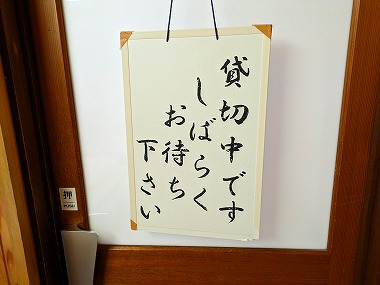 貸切中です
しばらく
お待ち
下さい
押
PUSH